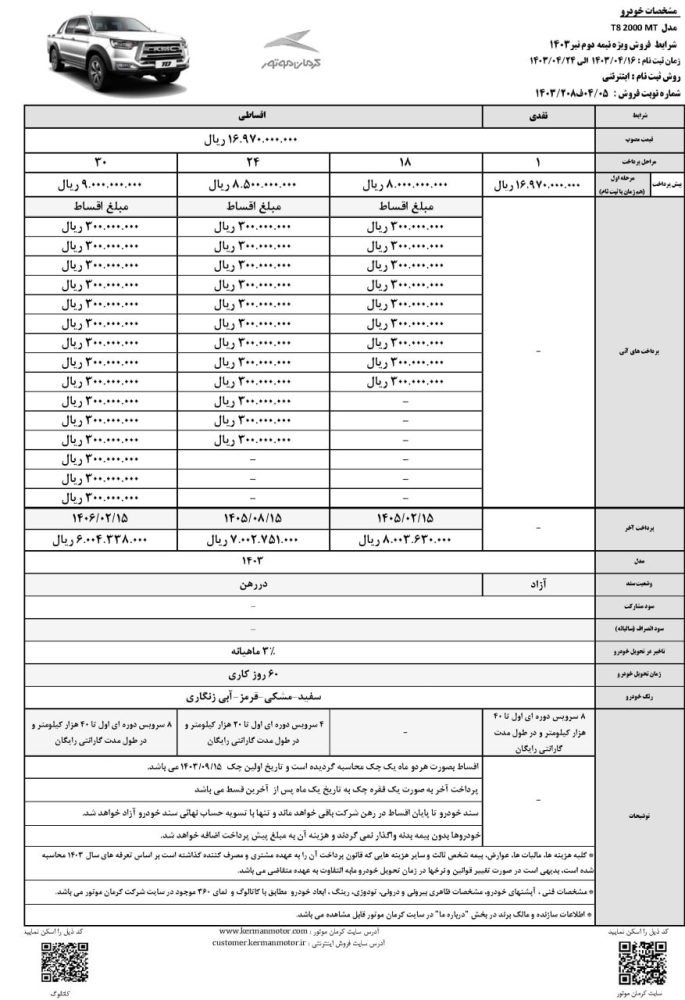 مشخصات خودرو
مدل T8 2000 MT
شرایط فروش ویژه نیمه دوم تیر ۱۴۰۳
زمان ثبت نام : ۱۴۰۳/۰۴/۱۶ الی ۱۴۰۳/۰۴/۲۴
روش ثبت نام : اینترنتی
شماره نوبت فروش : ۰۴/۰۵ف۱۴۰۳/۲۰۸
کرمان موتور
KMC
T8
شرایط نقدی اقساطی
قیمت مصوب ۱۶.۹۷۰.۰۰۰.۰۰۰ ریال
مراحل پرداخت ۱ ۱۸ ۲۴ ۳۰
پیش پرداخت مرحله اول (هم زمان با ثبت نام) ۱۶.۹۷۰.۰۰۰.۰۰۰ ریال ۸.۰۰۰.۰۰۰.۰۰۰ ریال ۸.۵۰۰.۰۰۰.۰۰۰ ریال ۹.۰۰۰.۰۰۰.۰۰۰ ریال
پرداخت های آتی - مبلغ اقساط مبلغ اقساط مبلغ اقساط
۳۰۰.۰۰۰.۰۰۰ ریال ۳۰۰.۰۰۰.۰۰۰ ریال ۳۰۰.۰۰۰.۰۰۰ ریال
۳۰۰.۰۰۰.۰۰۰ ریال ۳۰۰.۰۰۰.۰۰۰ ریال ۳۰۰.۰۰۰.۰۰۰ ریال
۳۰۰.۰۰۰.۰۰۰ ریال ۳۰۰.۰۰۰.۰۰۰ ریال ۳۰۰.۰۰۰.۰۰۰ ریال
۳۰۰.۰۰۰.۰۰۰ ریال ۳۰۰.۰۰۰.۰۰۰ ریال ۳۰۰.۰۰۰.۰۰۰ ریال
۳۰۰.۰۰۰.۰۰۰ ریال ۳۰۰.۰۰۰.۰۰۰ ریال ۳۰۰.۰۰۰.۰۰۰ ریال
۳۰۰.۰۰۰.۰۰۰ ریال ۳۰۰.۰۰۰.۰۰۰ ریال ۳۰۰.۰۰۰.۰۰۰ ریال
۳۰۰.۰۰۰.۰۰۰ ریال ۳۰۰.۰۰۰.۰۰۰ ریال ۳۰۰.۰۰۰.۰۰۰ ریال
۳۰۰.۰۰۰.۰۰۰ ریال ۳۰۰.۰۰۰.۰۰۰ ریال ۳۰۰.۰۰۰.۰۰۰ ریال
۳۰۰.۰۰۰.۰۰۰ ریال ۳۰۰.۰۰۰.۰۰۰ ریال ۳۰۰.۰۰۰.۰۰۰ ریال
- ۳۰۰.۰۰۰.۰۰۰ ریال ۳۰۰.۰۰۰.۰۰۰ ریال
- ۳۰۰.۰۰۰.۰۰۰ ریال ۳۰۰.۰۰۰.۰۰۰ ریال
- ۳۰۰.۰۰۰.۰۰۰ ریال ۳۰۰.۰۰۰.۰۰۰ ریال
- - ۳۰۰.۰۰۰.۰۰۰ ریال
- - ۳۰۰.۰۰۰.۰۰۰ ریال
- - ۳۰۰.۰۰۰.۰۰۰ ریال
پرداخت آخر - ۱۴۰۵/۰۲/۱۵ ۱۴۰۵/۰۸/۱۵ ۱۴۰۶/۰۲/۱۵
۸.۰۰۳.۶۳۰.۰۰۰ ریال ۷.۰۰۲.۷۵۱.۰۰۰ ریال ۶.۰۰۴.۳۳۸.۰۰۰ ریال
مدل ۱۴۰۳
وضعیت سند آزاد دررهن
سود مشارکت -
سود انصراف (سالیانه) -
تاخیر در تحویل خودرو ۳٪ ماهیانه
زمان تحویل خودرو ۶۰ روز کاری
رنگ خودرو سفید-مشکی-قرمز-آبی زنگاری
توضیحات
۸ سرویس دوره ای اول تا ۴۰ هزار کیلومتر و در طول مدت گارانتی رایگان
-
۴ سرویس دوره ای اول تا ۲۰ هزار کیلومتر و در طول مدت گارانتی رایگان
۸ سرویس دوره ای اول تا ۴۰ هزار کیلومتر و در طول مدت گارانتی رایگان
-
اقساط بصورت هردو ماه یک چک محاسبه گردیده است و تاریخ اولین چک ۱۴۰۳/۰۹/۱۵ می باشد.
پرداخت آخر به صورت یک فقره چک به تاریخ یک ماه پس از آخرین قسط می باشد
سند خودرو تا پایان اقساط در رهن شرکت باقی خواهد ماند و تنها با تسویه حساب نهائی سند خودرو آزاد خواهد شد.
خودروها بدون بیمه بدنه واگذار نمی گردند و هزینه آن به مبلغ پیش پرداخت اضافه خواهد شد.
* کلیه هزینه ها، مالیات ها، عوارض، بیمه شخص ثالث و سایر هزینه هایی که قانون پرداخت آن را به عهده مشتری و مصرف کننده گذاشته است بر اساس تعرفه های سال ۱۴۰۳ محاسبه
شده است، بدیهی است در صورت تغییر قوانین و نرخها در زمان تحویل خودرو مابه التفاوت به عهده متقاضی می باشد.
* مشخصات فنی ، آپشنهای خودرو، مشخصات ظاهری بیرونی و درونی، تودوزی، رینگ ، ابعاد خودرو مطابق با کاتالوگ و نمای ۳۶۰ موجود در سایت شرکت کرمان موتور می باشد.
* اطلاعات سازنده و مالک برند در بخش "درباره ما" در سایت کرمان موتور قابل مشاهده می باشد.
کد ذیل را اسکن نمایید
سایت کرمان موتور
آدرس سایت کرمان موتور : www.kermanmotor.com
آدرس سایت فروش اینترنتی : customer.kermanmotor.ir
کد ذیل را اسکن نمایید
کاتالوگ